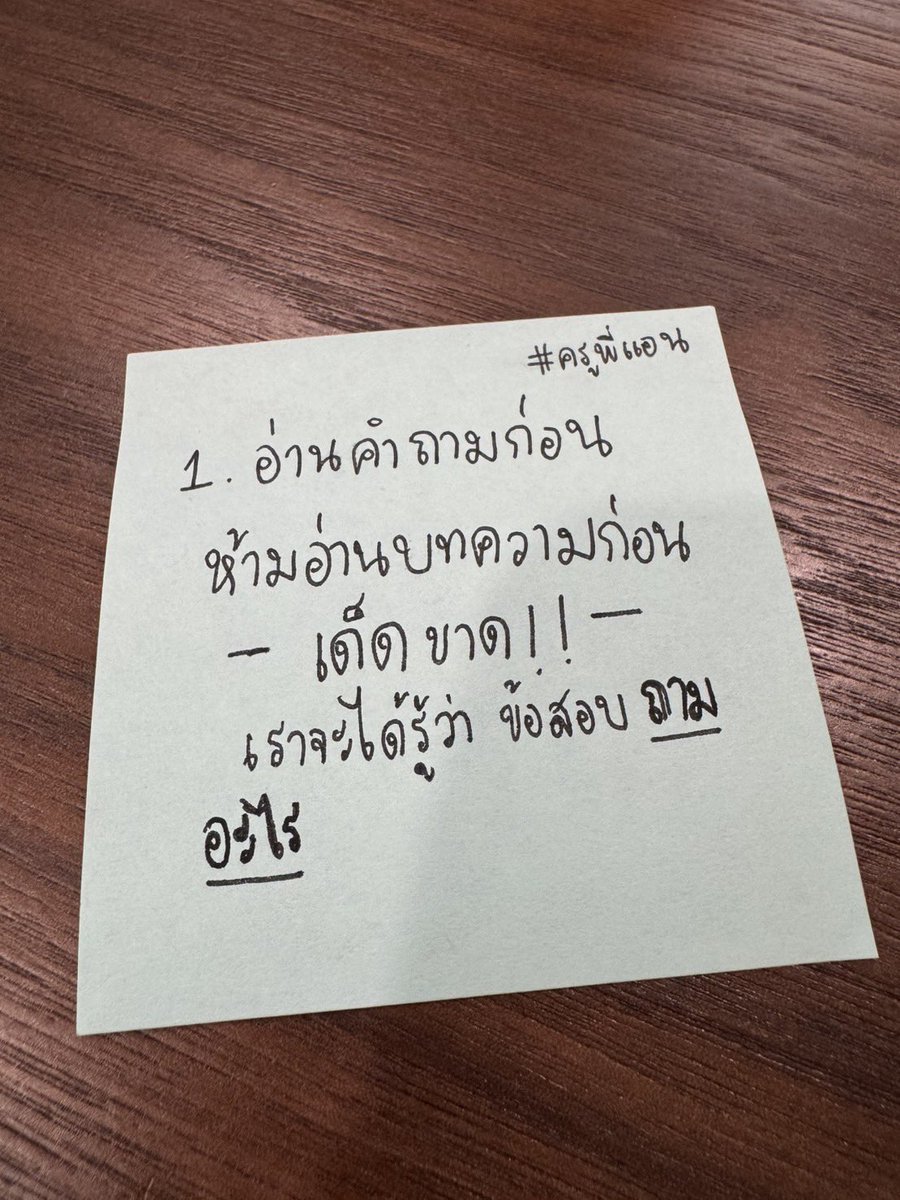 #ครูพี่แอน
1. อ่านคำถามก่อน
ห้ามอ่านบทความก่อน
- เด็ดขาด!! -
เราจะได้รู้ว่า ข้อสอบ ถาม
อะไร